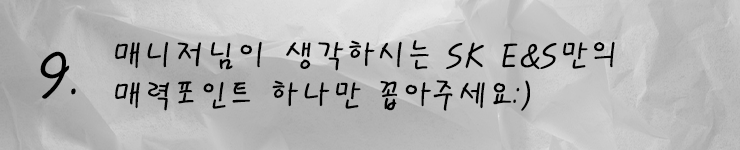 9. 매니저님이 생각하시는 SK E&S만의
매력포인트 하나만 꼽아주세요:)